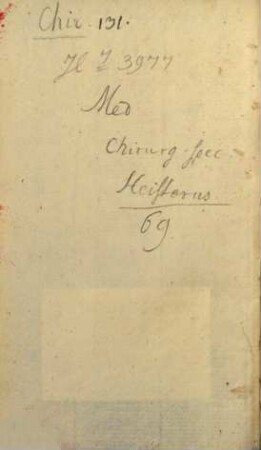 Chir. 131.
Med
Chirurg. spec
Heisterus
69